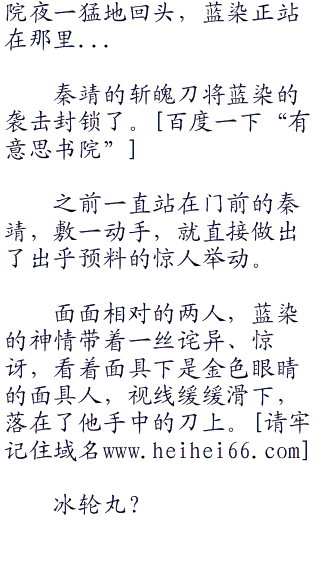 院夜一猛地回头，蓝染正站
在那里...
秦靖的斩魄刀将蓝染的
袭击封锁了。[百度一下“有
意思书院”]
之前一直站在门前的秦
靖，敷一动手，就直接做出
了出乎预料的惊人举动。
面面相对的两人，蓝染
的神情带着一丝诧异、惊
讶，看着面具下是金色眼睛
的面具人，视线缓缓滑下，
落在了他手中的刀上。[请牢
记住域名www.heihei66.com]
冰轮丸？